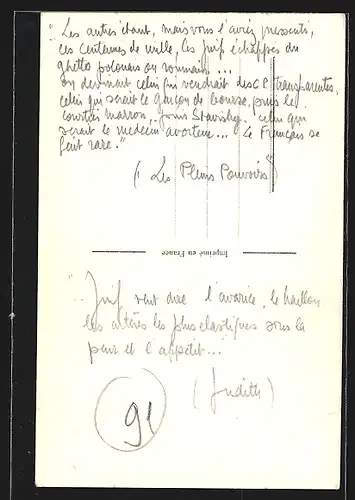 "Les autres étant, mais vous l'avez pressenti,
ces centaines de mille, les juifs échappés du
ghetto polonais ou roumain...
on devinait celui qui vendrait des CP transparentes,
celui qui serait le garçon de bourse, puis le
courtier marron, puis Stavisky. celui qui
serait le médecin avorteur... le Français se
fait rare."
(Les Pleins Pouvoirs)
Imprimé en France
Juif veut dire l'avarice, le haillon
les artères les plus élastiques sous la
peur et l'appétit...
(Judith)
91